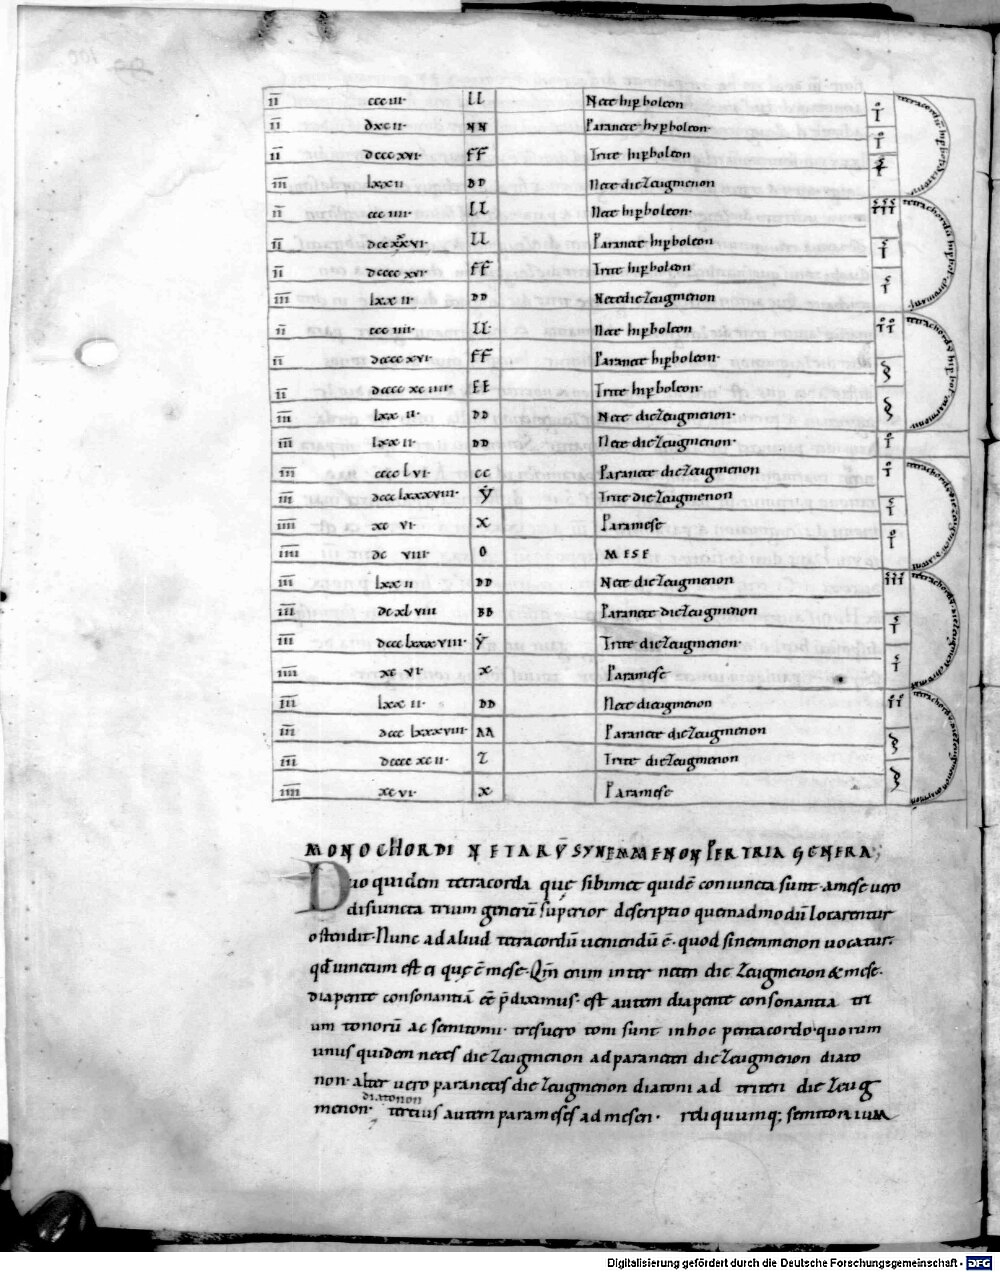 II ccc III· LL Nete hiꝑboleon T
II dxc II· NN Paranete hyꝑboleon· T
II dccc XVI· FF Trite hiꝑboleon S
III lxx II DD Nete diezeugmenon
II ccc IIII· LL Nete hiꝑboleon· SSS III
II dcc xx VI· LL Paranete hiꝑboleon S T
II dcccc XVI· FF Trite hiꝑboleon S T
III lxx II· DD Nete diezeugmenon
II ccc IIII· LL· Nete hiꝑboleon TT
II dcccc XVI· FF Paranete hiꝑboleon·
II dcccc xc IIII· EE Trite hiꝑboleon·
III lxx II· DD Nete diezeugmenon·
III lxx II· DD Nete diezeugmenon· T
III cccc l VI· CC Paranete diezeugmenon T
III dccc lxxxVIII· Y Trite diezeugmenon S
IIII xc VI· X Paramese T
IIII dc VIII· O MESE
III lxx II DD Nete diezeugmenon SSS III
III dc xl VIII BB Paranete diezeugmenon S T
III dccc lxxx VIII· Y Trite diezeugmenon· S T
IIII xc VI· X Paramese
III lxx II· DD Nete dieugmenon
III dccc lxxxVIII· AA Paranete diezeugmenon
III dcccc xc II· Z Trite diezeugmenon
IIII xc VI· X Paramese
MONOCHORDI NETARV̄ SYNEMMENON PER TRIA GENERA;
Duo quidem tetracorda quę sibimet quidē coniuncta sunt· a mese uero
disiuncta trium generū superior descriptio quemadmodū locarentur
ostendit· Nunc ad aliud tetracordū ueniendū ē· quod sinemmenon uocatur·
qđ iunctum est ei quę ē mese· Qm̄ enim inter neten diezeugmenon & mese·
diapente consonantiā eē p̄diximus· est autem diapente consonantia tri
um tonorū ac semitonii· tres uero toni sunt in hoc pentacordo· quorum
unus quidem netes diezeugmenon ad paraneten diezeugmenon diato
non· alter uero paranetes diezeugmenon diatoni ad triten diezeug
menon· diatonon tertius autem parameses ad mesen· reliquumq; semitonium
Digitalisierung gefördert durch die Deutsche Forschungsgemeinschaft - DFG